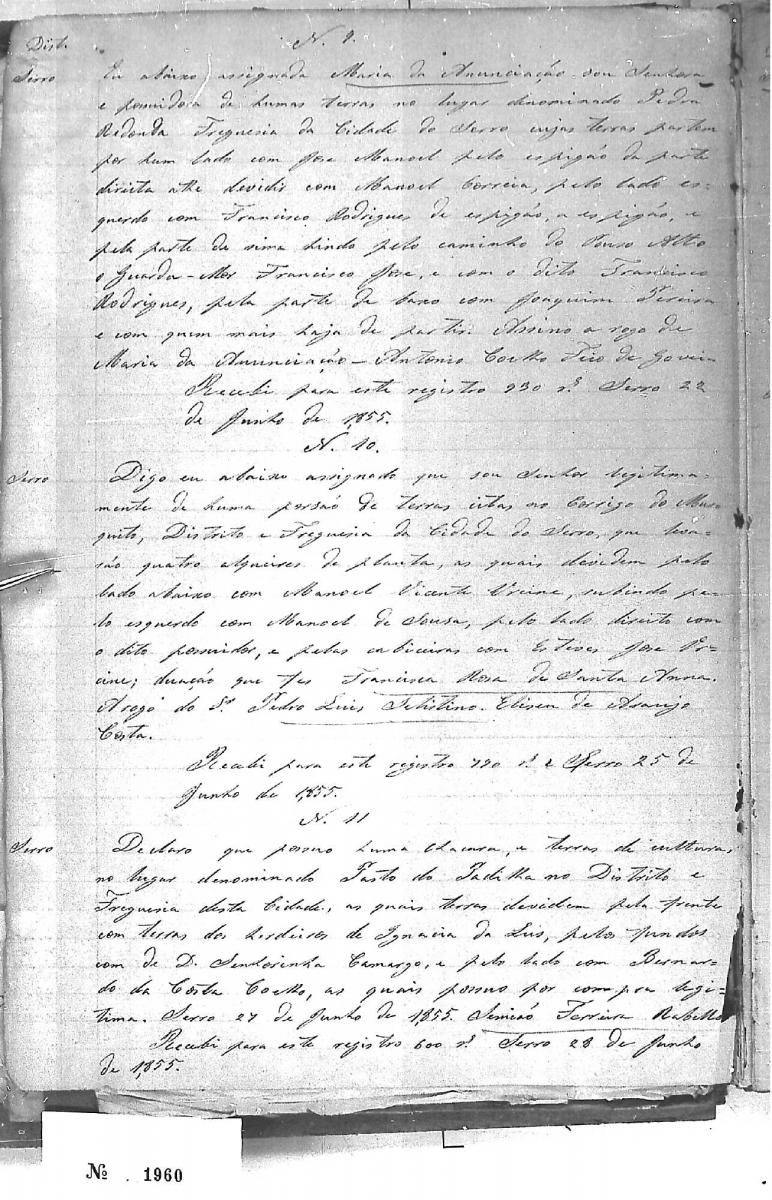 Dist. N. 9.
Serro Eu abaixo assignada Maria da Anunciação sou Senhora
e possuidora de humas terras no lugar denominado Pedra
Redonda Freguesia da Cidade do Serro cujas terras partem
por hum lado com Jose Manoel pelo espigão da parte
direita athe devidir com Manoel Correia, pelo lado es-
querdo com Francisco Rodrigues de espigão, a espigão, e
pela parte de sima hindo pelo caminho do Pouso Alto
o Guarda-Mor Francisco Jose, e com o dito Francisco
Rodrigues, pela parte de baxo com Joaquim Pereira
e com quem mais haja de partir. Assino a rogo de
Maria da Anunciação - Antonio Coelho
Recebi para este registro 930 rs. Serro 22
de Junho de 1,855.
N. 10.
Serro Digo eu abaixo assignado que sou Senhor legitima-
mente de huma porsão de terras citas no Corrigo do Mus-
quito, Distrito e Freguesia da Cidade do Serro, que leva-
rão quatro alqueires de planta, as quais devidem pelo
lado abaixo com Manoel Vicente subindo pe-
lo esquerdo com Manoel de Sousa, pelo lado direito com
o dito possuidor, e pelas cabiceiras com Esteves Jose Ur-
cine; duação que fes Francisca Rosa de Santa Anna.
Arogo do Sr. Pedro Luis Felistino. Eliseu de Araujo
Costa.
Recebi para este registro 790 rs. Serro 25 de
Junho de 1,855.
N. 11
Serro Declaro que possuo huma chacara, e terras de culturas,
no lugar denominado Pasto do Padilha no Distrito e
Freguesia desta Cidade, as quais terras devidem pela frente
com terras dos herdeiros de Ignacia da Lus, pelos fundos
com de D. Senhorinha Camargo, e pelo lado com Bernar-
do da Costa Coelho, as quais possuo por compra legi-
tima. Serro 27 de Junho de 1,855. Simião Ferreira Rabello
Recebi para este registro 600 rs. Serro 28 de Junho
de 1,855.
№ . 1960